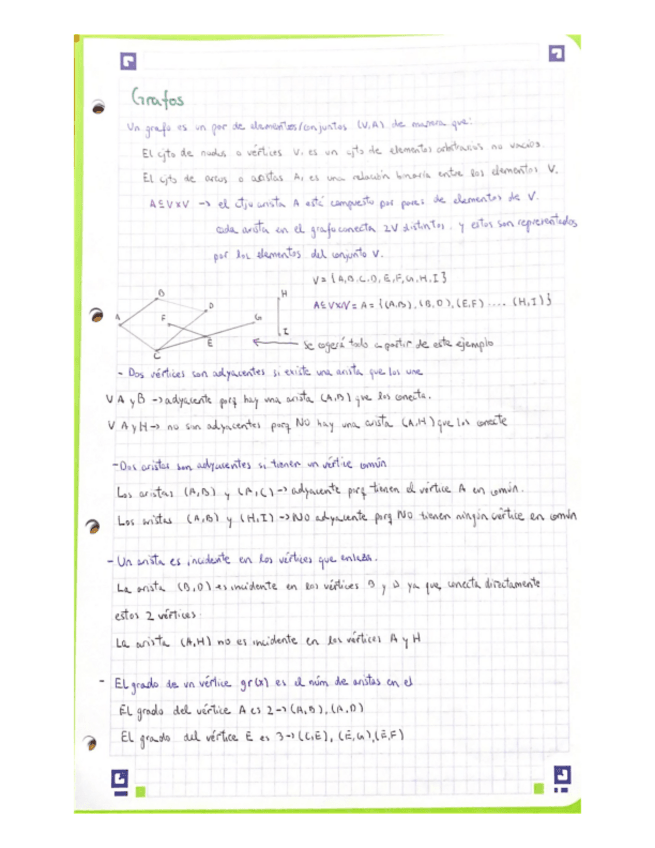 Grafos
Un grafo es un par de elementos/conjuntos (V,A) de manera que:
El cjto de nodos o vértices V, es un cjto de elementos arbitrarios no vacíos.
El cjto de arcos o aristas A, es una relación binaria entre los elementos V.
A⊆V×V → el ctjo arista A está compuesto por pares de elementos de V.
cada arista en el grafo conecta 2V distintos, y estos son representados
por los elementos del conjunto V.
V = {A,B,C,D,E,F,G,H,I}
A⊆V×V = A = {(A,B), (B,D), (E,F) .... (H,I)}
A B C D E F G H I
← Se cogerá todo a partir de este ejemplo
- Dos vértices son adyacentes si existe una arista que los une
V A y B → adyacente porq hay una arista (A,B) que los conecta.
V A y H → no son adyacentes porq NO hay una arista (A,H) que los conecte
- Dos aristas son adyacentes si tienen un vértice común
Las aristas (A,B) y (A,C) → adyacente porq tienen el vértice A en común.
Las aristas (A,B) y (H,I) → NO adyacente porq NO tienen ningún vértice en común
- Un arista es incidente en los vértices que enlaza.
La arista (B,D) es incidente en los vértices B y D ya que, conecta directamente
estos 2 vértices
La arista (A,H) no es incidente en los vértices A y H
- El grado de un vértice gr(x) es el núm de aristas en el
El grado del vértice A es 2 → (A,B), (A,D)
El grado del vértice E es 3 → (C,E), (E,G), (E,F)